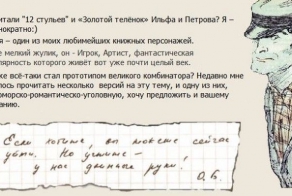 итали "12 стульев" и «Золотой телёнок» Ильфа и Петрова? Я –
нократно:)
я – один из моих любимейших книжных персонажей.
е мелкий жулик, он - Игрок, Артист, фантастическая
лярность которого живёт вот уже почти целый век.
же всё-таки стал прототипом великого комбинатора? Недавно мне
лось прочитать несколько версий на эту тему, и одну из них,
оморско-романтическо-уголовную, хочу предложить и вашему
анию.
Если хотите, вы можете сейчас
уйти. Но учтите –
у нас длинные руки.
О. Б.